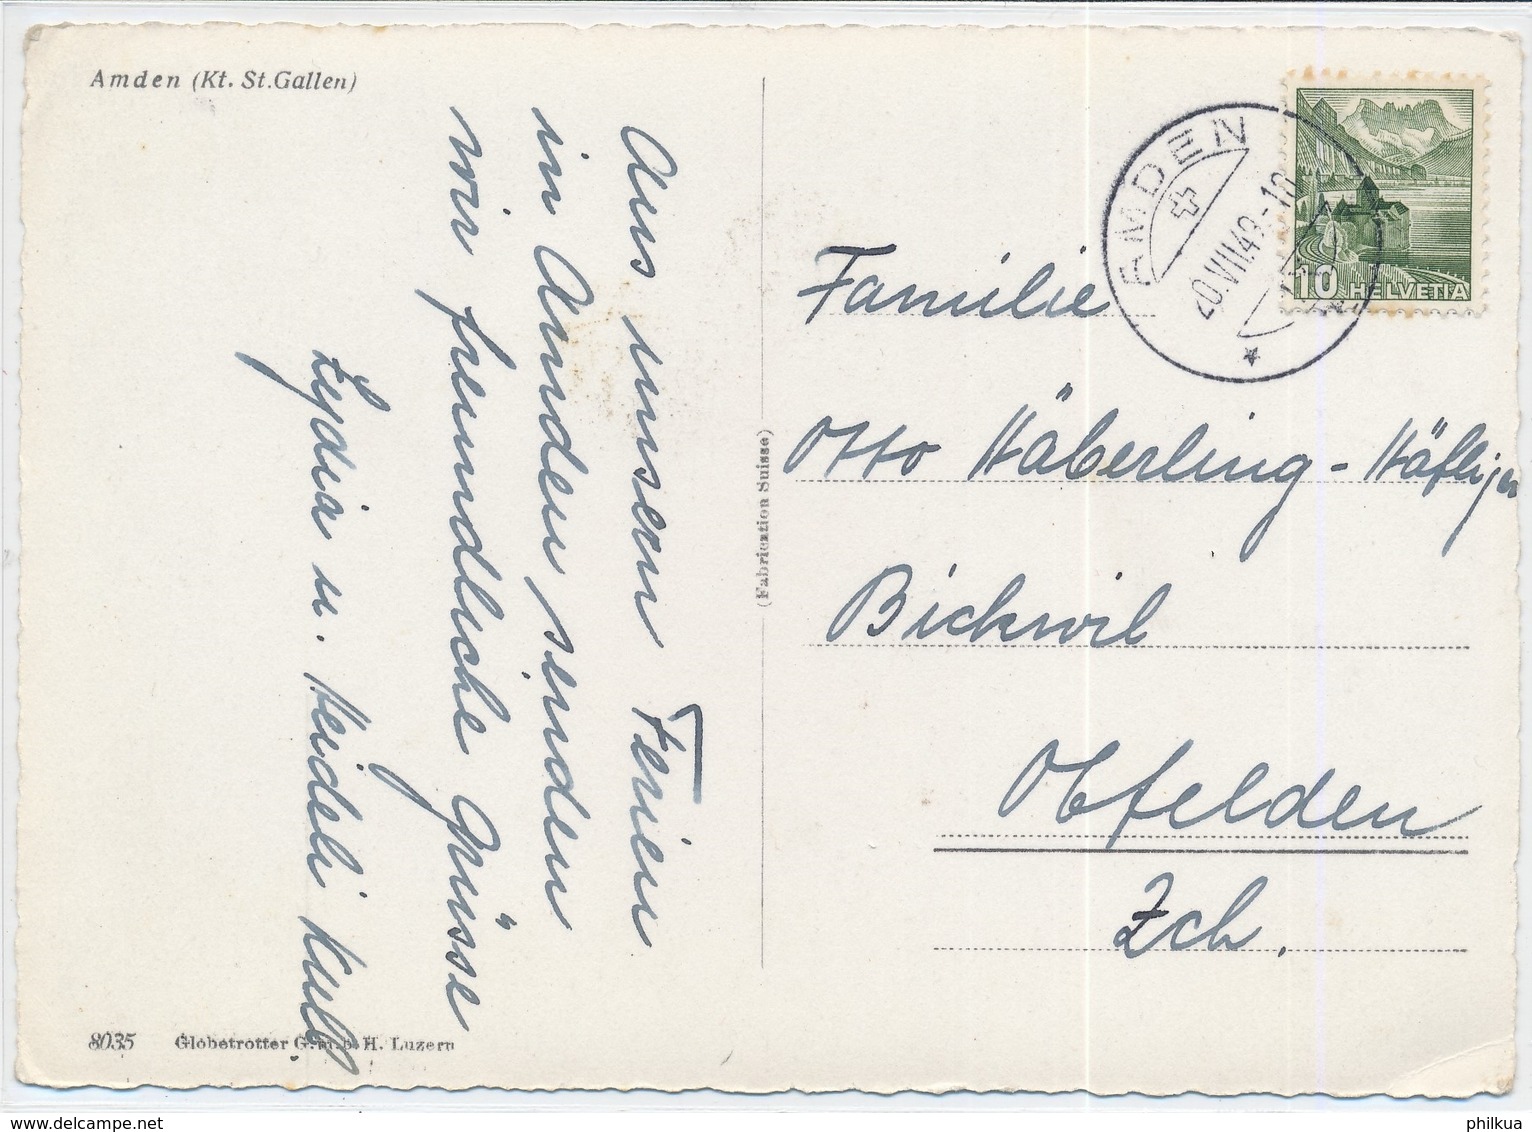 Amden (Kt. St.Gallen)
Aus unsern Ferien
in Amden senden
wir freundliche Grüsse
Lydia u. Heideli Kull
8035 Globetrotter G.m.b.H. Luzern
(Fabrication Suisse)
AMDEN
20.VII.49.-10
10 HELVETIA
Familie
Otto Häberling-Häfliger
Bickwil
Obfelden
Zch.
www.delcampe.net
philkua